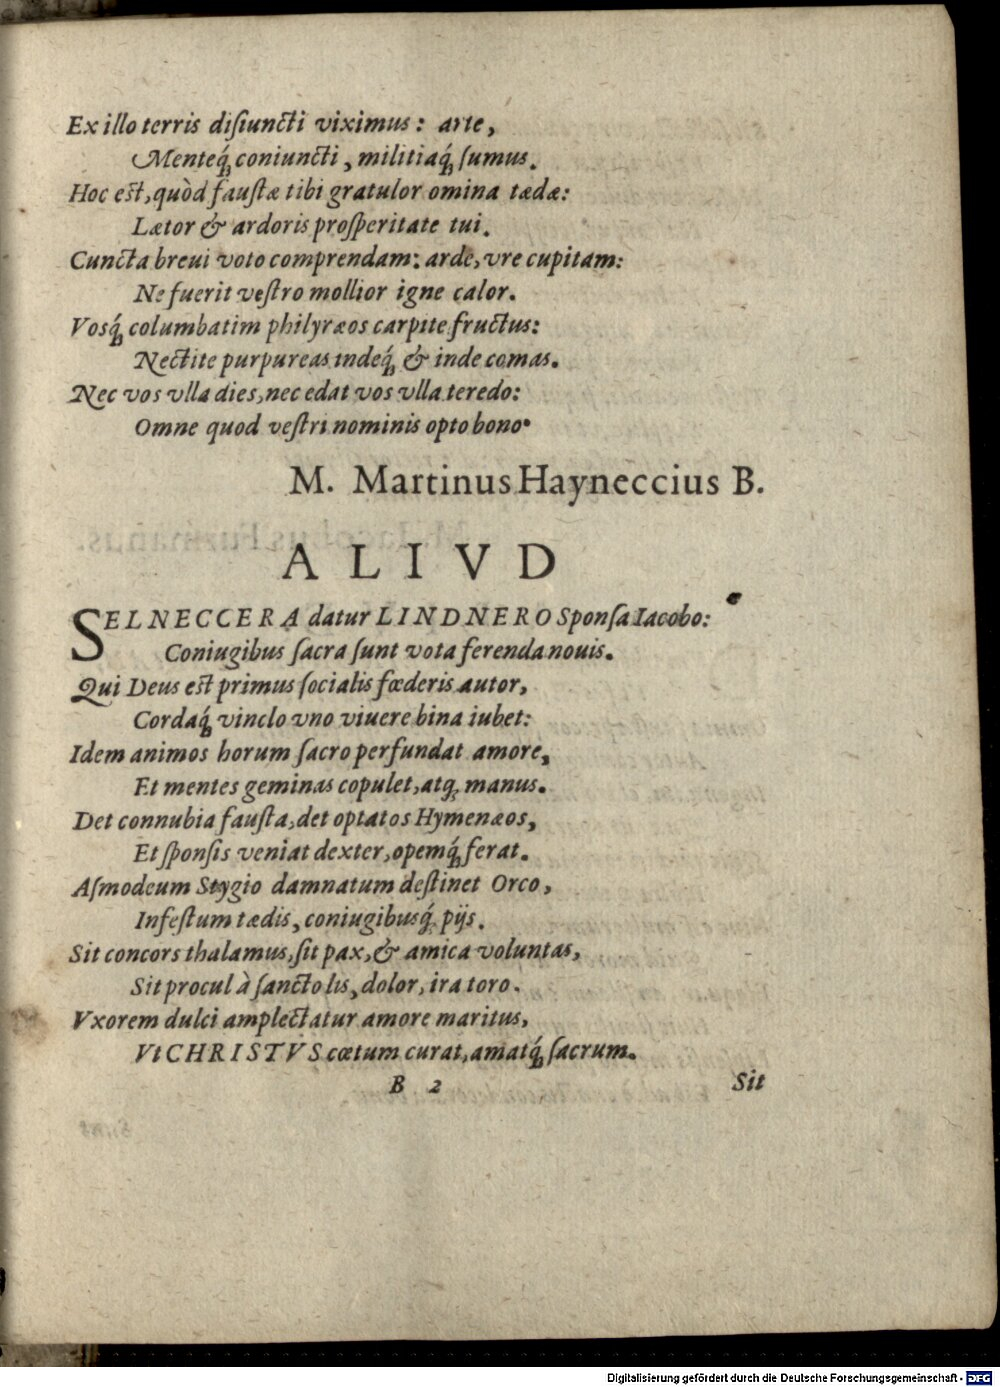 Ex illo terris disiuncti viximus: arte,
Menteq́; coniuncti, militiaq́; sumus.
Hoc est, quòd faustæ tibi gratulor omina tædæ:
Lætor & ardoris prosperitate tui.
Cuncta breui voto comprendam: arde, vre cupitam:
Ne fuerit vestro mollior igne calor.
Vosq́; columbatim philyræos carpite fructus:
Nectite purpureas indeq́; & inde comas.
Nec vos vlla dies, nec edat vos vlla teredo:
Omne quod vestri nominis opto bono.
M. Martinus Hayneccius B.
ALIVD
SELNECCERA datur LINDNERO Sponsa Iacobo:
Coniugibus sacra sunt vota ferenda nouis.
Qui Deus est primus socialis fœderis autor,
Cordaq́; vinclo vno viuere bina iubet:
Idem animos horum sacro perfundat amore,
Et mentes geminas copulet, atq; manus.
Det connubia fausta, det optatos Hymenæos,
Et sponsis veniat dexter, opemq́; ferat.
Asmodeum Stygio damnatum destinet Orco,
Infestum tædis, coniugibusq́; pijs.
Sit concors thalamus, sit pax, & amica voluntas,
Sit procul à sancto lis, dolor, ira toro.
Vxorem dulci amplectatur amore maritus,
Vt CHRISTVS cœtum curat, amatq́; sacrum.
B 2 Sit
Digitalisierung gefördert durch die Deutsche Forschungsgemeinschaft - DFG